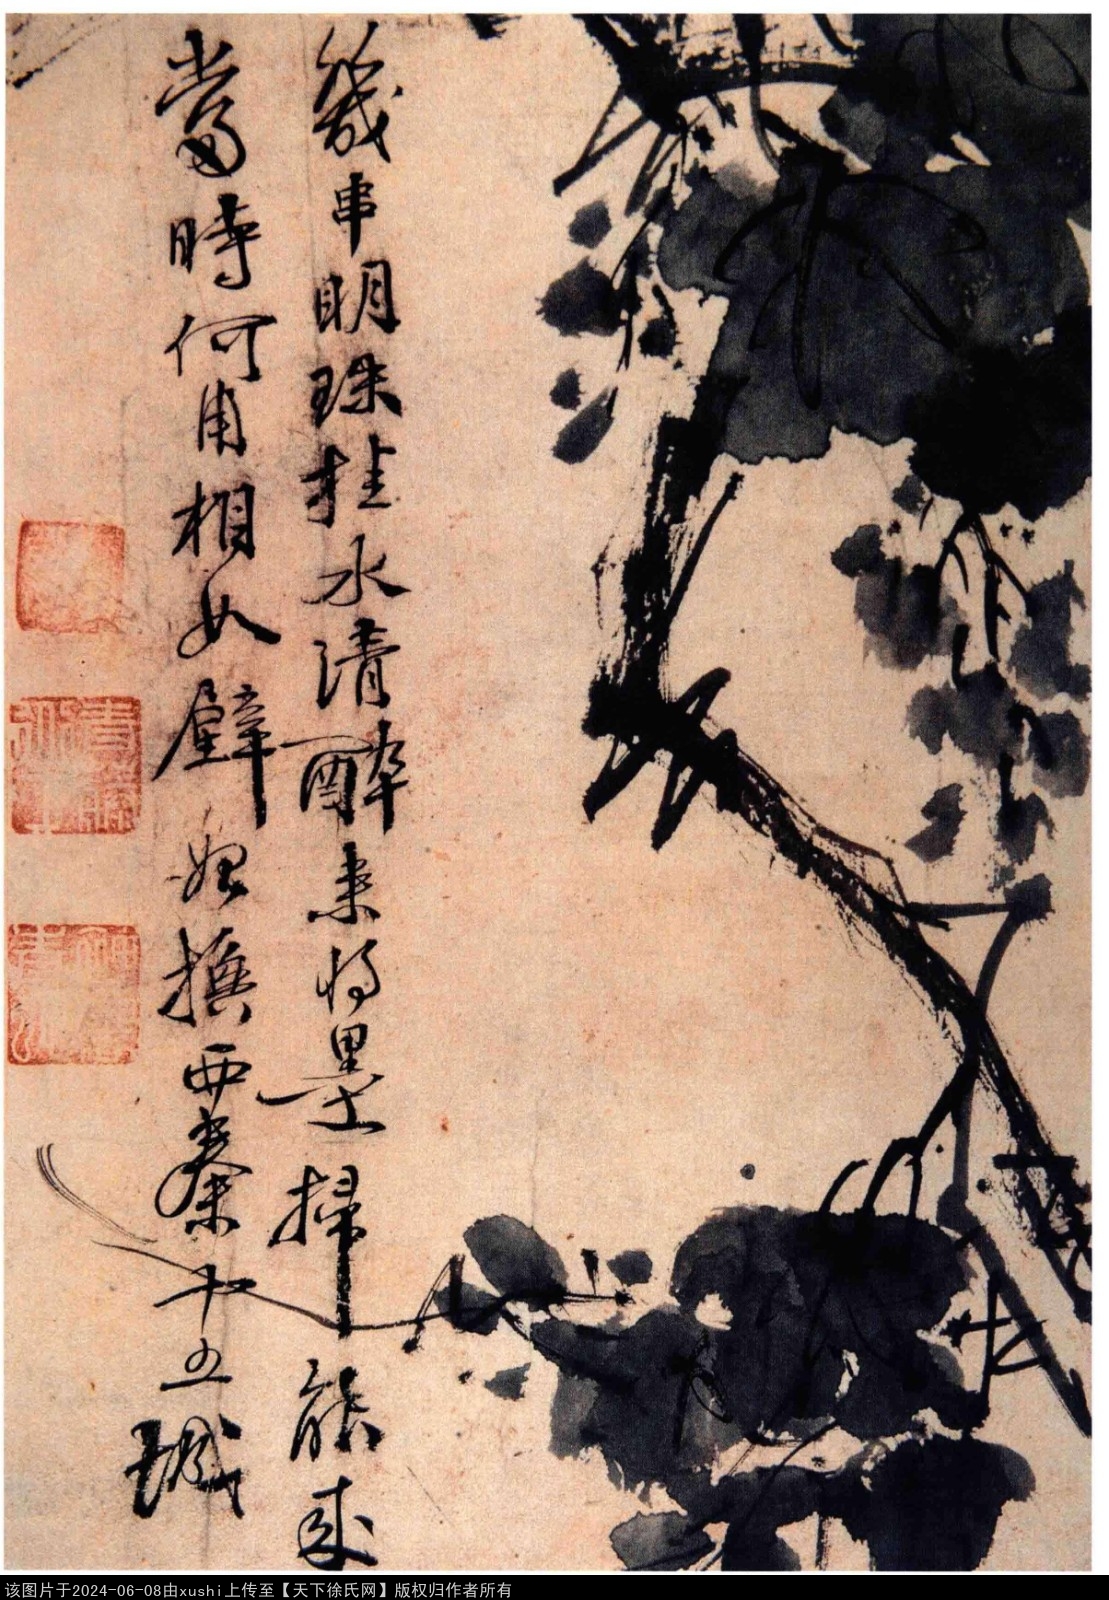 幾串明珠挂水清醉來將墨掃能成
當時何用相如璧始換西秦十五城
该图片于2024-06-08由xushi上传至【天下徐氏网】版权归作者所有